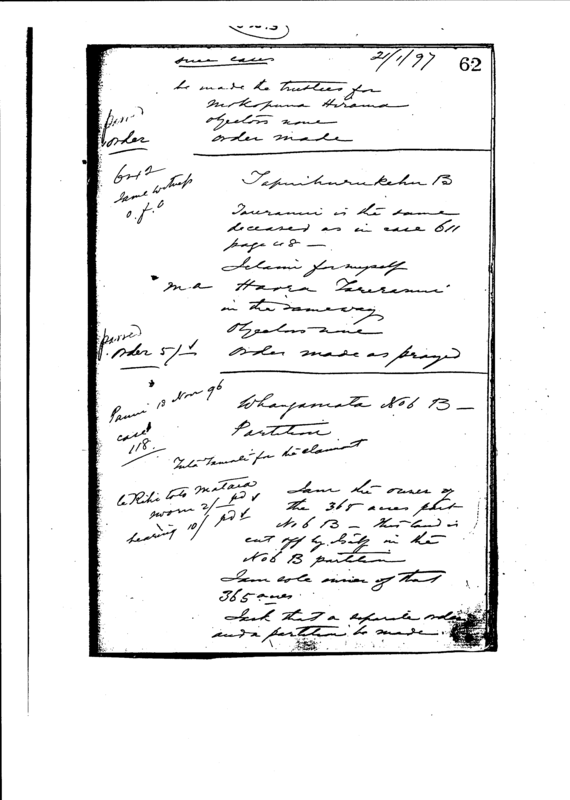 21/1/97
62
be made the trustees for
Mokopuna Hirama
objectors none
order made
passed
order
612
Same witness
o. f. o
B
Tareranui is the same
deceased as in case 611
page 48 —
I claim for myself
m. a Haora Tareranui
in the same way
Objectors none
passed
order 5/-
order made as prayed
13 Nov 96
case
118.
Whangamata No 6 B —
Partition
for the claimant
sworn 2/- pd
hearing 10/ pd
I am the owner of
the 365 acres part
No 6 B — this land is
cut off by itself in the
No 6 B partition
I am sole owner of that
365 acres
I ask that a separate order
and a partition be made